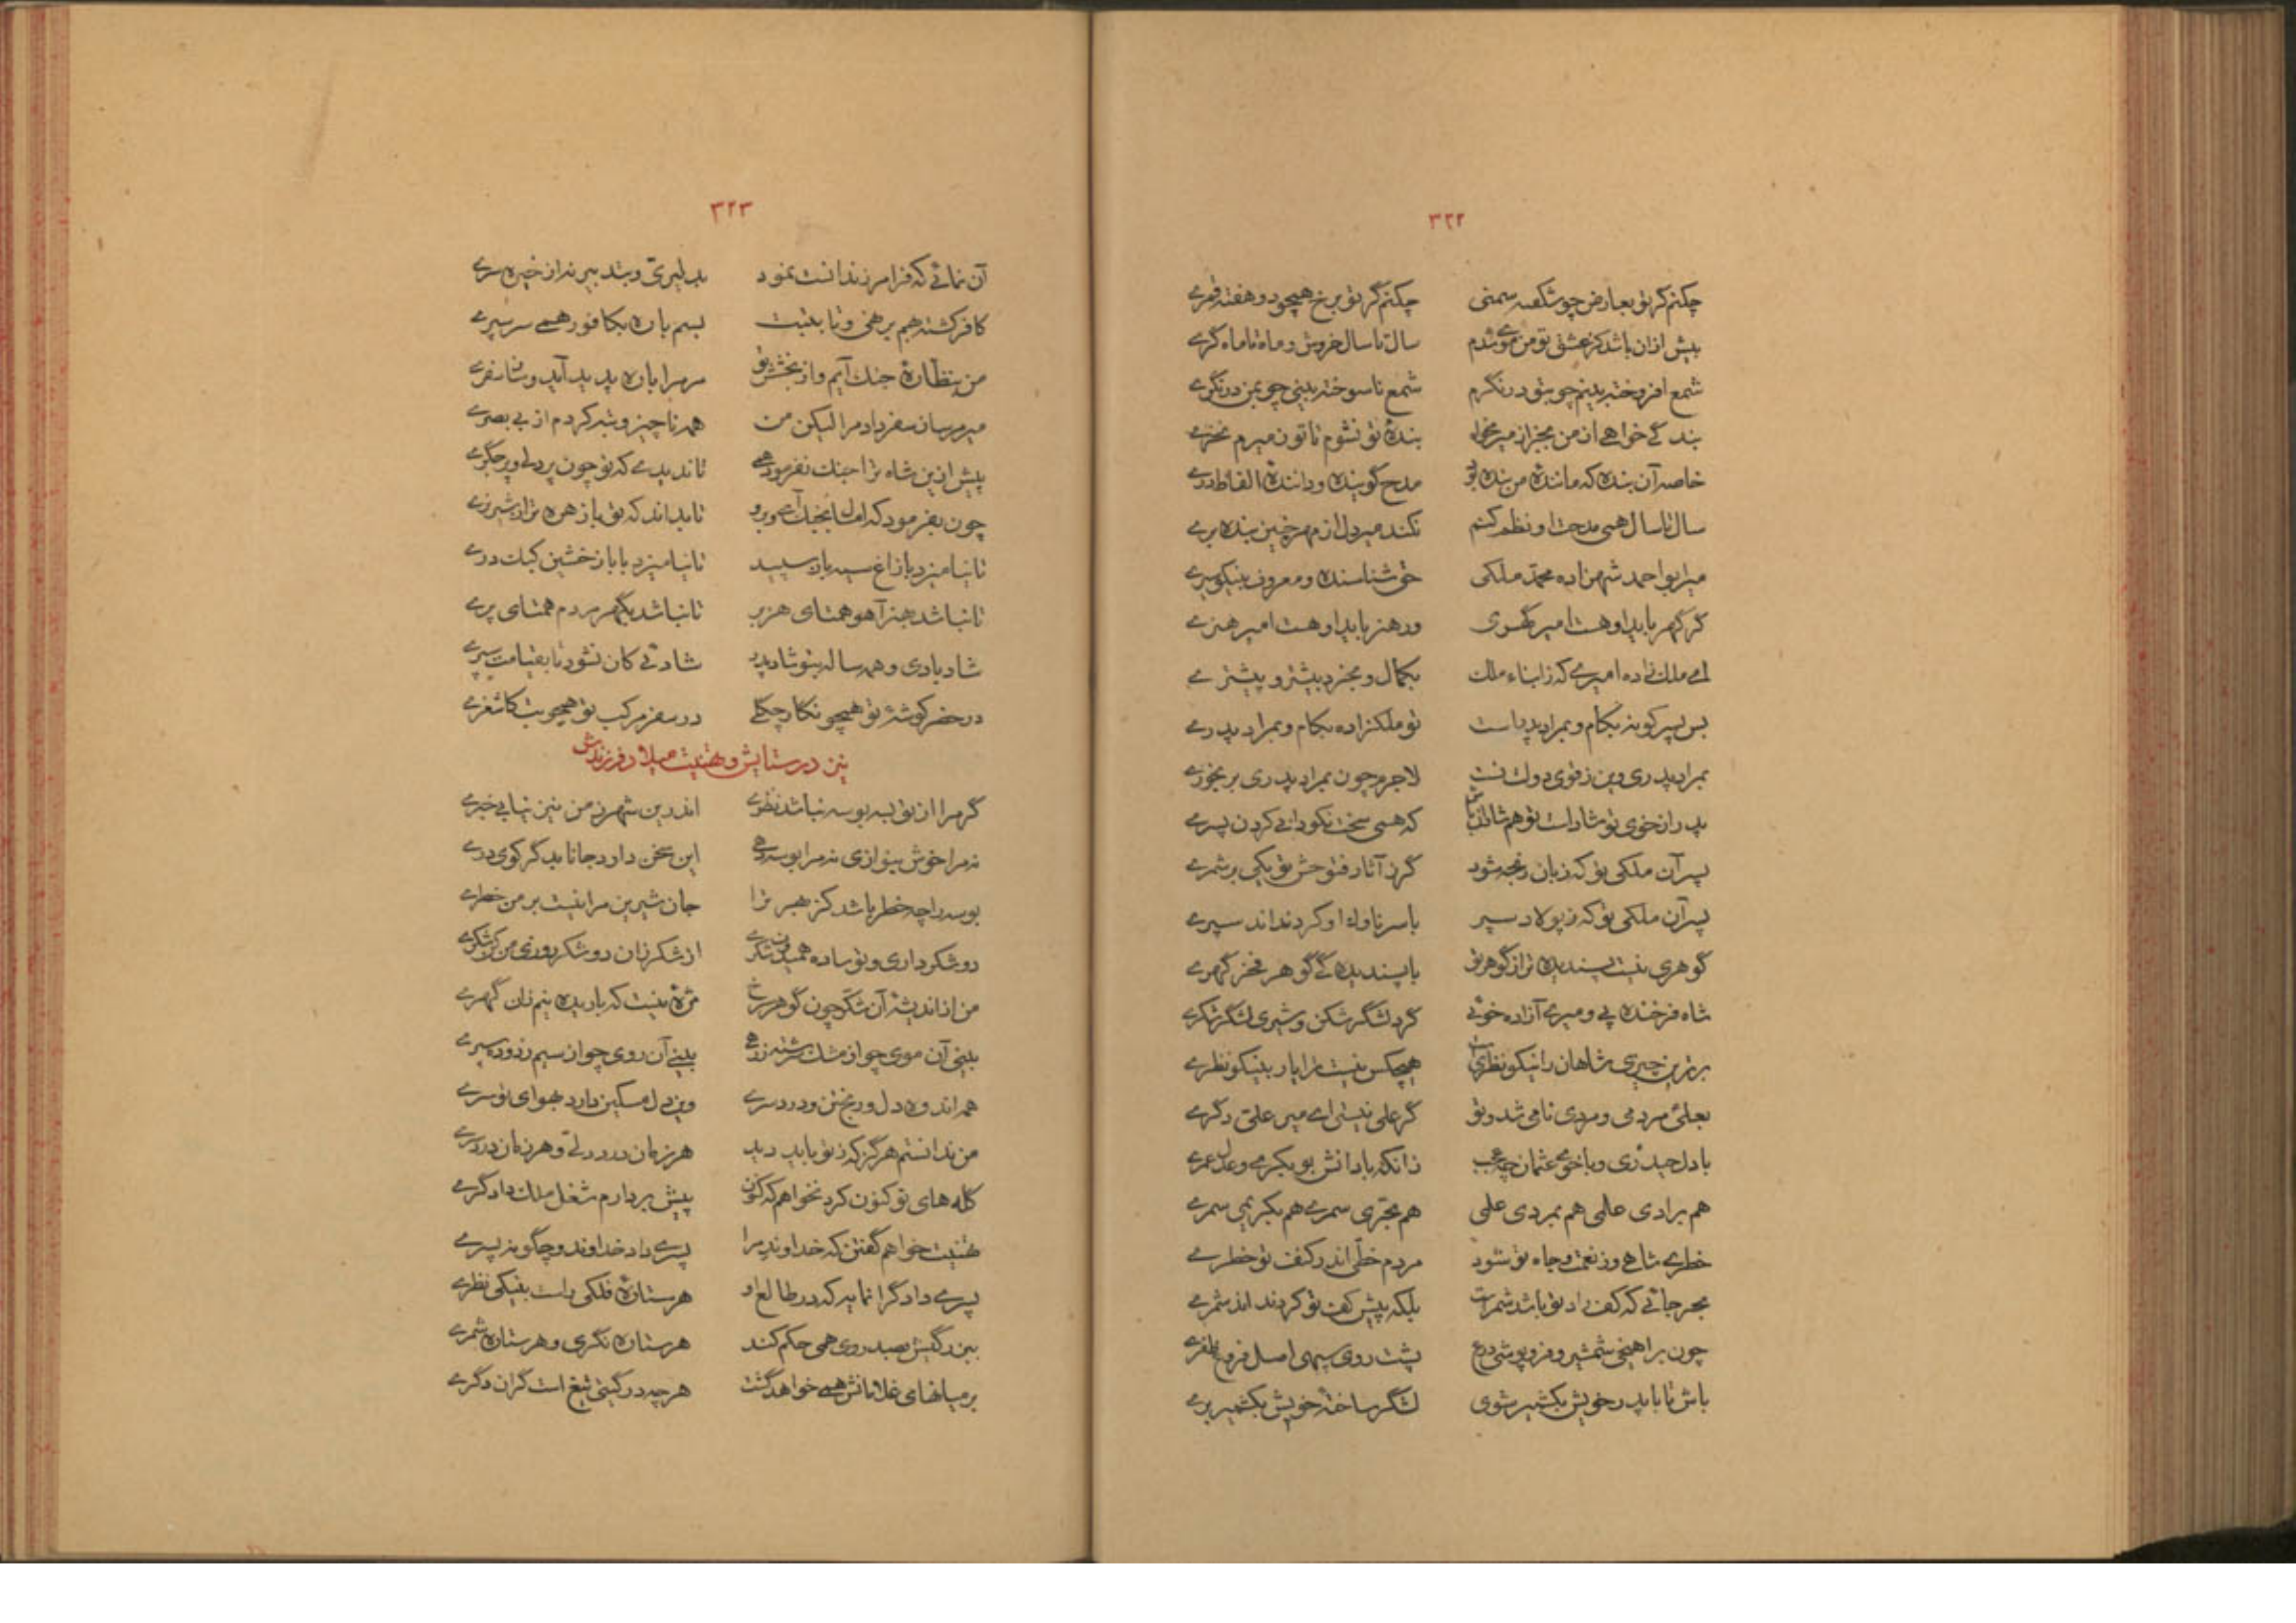 ۳۲۲
چکنم گر تو بعارض چو شکفته سمنی چکنم گر تو برخ همچو دو هفته قمری
بیش ازان باشد کز عشق تو من موی شدم سال تا سال خروش و ماه تا ماه گری
شمع افروخته بینم چو بتو در نگرم شمع نا سوخته بینی چو بمن در نگری
بندگی خواهی از من بخر از میر مرا بندهٔ تو نشوم تا تو ز میرم نخری
خاصه آن بنده که مانندهٔ من بنده بود مدح گوینده و دانندهٔ الفاظ دری
سال تا سال همی مدحت او نظم کنم نکند میر دل از مهر چنین بنده بری
میر ابو احمد شهزاده محمد ملکی حق شناسنده و معروف بنیکو سیری
گر گهر باید او هست امیر گهری ور هنر باید او هست امیر هنری
ای ملک زاده امیری که ز ابناء ملک بکمال و بخرد بیشتر و پیشتری
بس پسر کو نه بکام و بمراد پدر است تو ملکزاده بکام و بمراد پدری
بمراد پدری وین ز قوی دولت تست لاجرم چون بمراد پدری بر بخوری
پدر از خوی تو شاد است تو هم شادان باش که همی سخت نکو دانی کردن پسری
پسر آن ملکی تو که زبان رنجه شود گر ز آثار فتوحش تو یکی بر شمری
پسر آن ملکی تو که ز پولاد سپر با سر ناوک او کرد نداند سپری
گوهری نیست پسندیده تر از گوهر تو با پسندیدگی گوهر فخر گهری
شاه فرخنده پی و میر آزاده خوئی گرد لشگر شکن و شیر لشگر شکری
برترین چیزی شاهان را نیکو نظریست هیچکس نیست ترا یار بنیکو نظری
بعلی مردمی و مردی نامی شد و تو گر علی نیستی ای میر علی دگری
با دل حیدری و با خوی عثمان چه عجب زانکه با دانش بوبکری و عدل عمری
هم برادی علمی هم بمردی علمی هم بحری سمری هم بکریمی سمری
خطری شاهی وز نعمت و جاه تو شود مردم خطی اندر کنف تو خطری
بحر جائی که کف راد تو باشد شمر است بلکه پیش کف تو کرد نداند شمری
چون بر آهیختی شمشیر و فرو پوشی درع پشت روی سپهی اصل فروغ ظفری
باش تا با پدر خویش بکشمیر شوی لشگر ساختهٔ خویش بکشمیر بری
۳۲۳
آن نمائی که فرامرز ندانست نمود بدلیری و بتدبیر نه از خیره سری
کافر کشته بهم بر نهی و تا بتبت بسم باره بکافور همی سر سپری
من بنظارهٔ جنگ آیم و از بخشش تو مر مرا باره پدید آید و ساز سفری
میر میران سفر داد مرا لیکن من همه ناچیز و تبه کردم از بی بصری
پیش ازین شاه ترا جنگ نفرمود همی تا ندیدی که تو چون پر دل و پر جگری
چون بفرمود که امسال بجنگ آی و برو تا بداند که تو با زهرهٔ تر از شیر نری
تا نیامیزد با زاغ سیه باز سپید تا نیامیزد با باز خشین کبک دری
تا نباشد بهنر آهو همتای هزبر تا نباشد بگهر مردم همتای پری
شاد بادی و همه ساله بتو شاد پدر شادئی کان نشود تا بقیامت سپری
در حضر گوشهٔ تو همچو نگار چگلی در سفر مرکب تو همچو بت کاشغری
نیز در ستایش و تهنیت میلاد فرزندش
گر مرا از تو لبه بوسه نباشد نظری اندرین شهر ز من نیز نیابی خبری
نه مرا خوش بنوازی نه مرا بوسه دهی این سخن دارد جانا بدگر کوی دری
بوسه را چه خطر باشد کز هجر ترا جان شیرین مرا نیست بر من خطری
دو شکر داری و تو ساده همیدون شکری از شکر زان دو شکر روزی من کن شکری
من از اندیشهٔ آن شکر چون گوهر سرخ مژه نیست که باریده نیم زان گهری
بینی آن موی چو از مشک سرشته زرهی بینی آن روی چو از سیم زدوده سپری
همه اندوه دل و رنج تن و درد سری وین دل مسکین دارد بهوای تو سری
من ندانستم هرگز که ز تو باید دید هر زمان درد دلی و هر زمان درد سری
گله های تو کنون کرد نخواهم که کنون پیش بر دارم شغل ملک دادگری
تهنیت خواهم گفتن که خداوند مرا پسری داد خداوند و چگونه پسری
پسری داد گرانمایه که در طالع او هر ستارهٔ فلکی راست بنیکی نظری
ببزرگیش بصد روی همی حکم کند هر ستاره نگری و هر ستاره شمری
بر میانهای غلامانش همی خواهد گشت هر چه در گیتی تیغ است گران و کمری